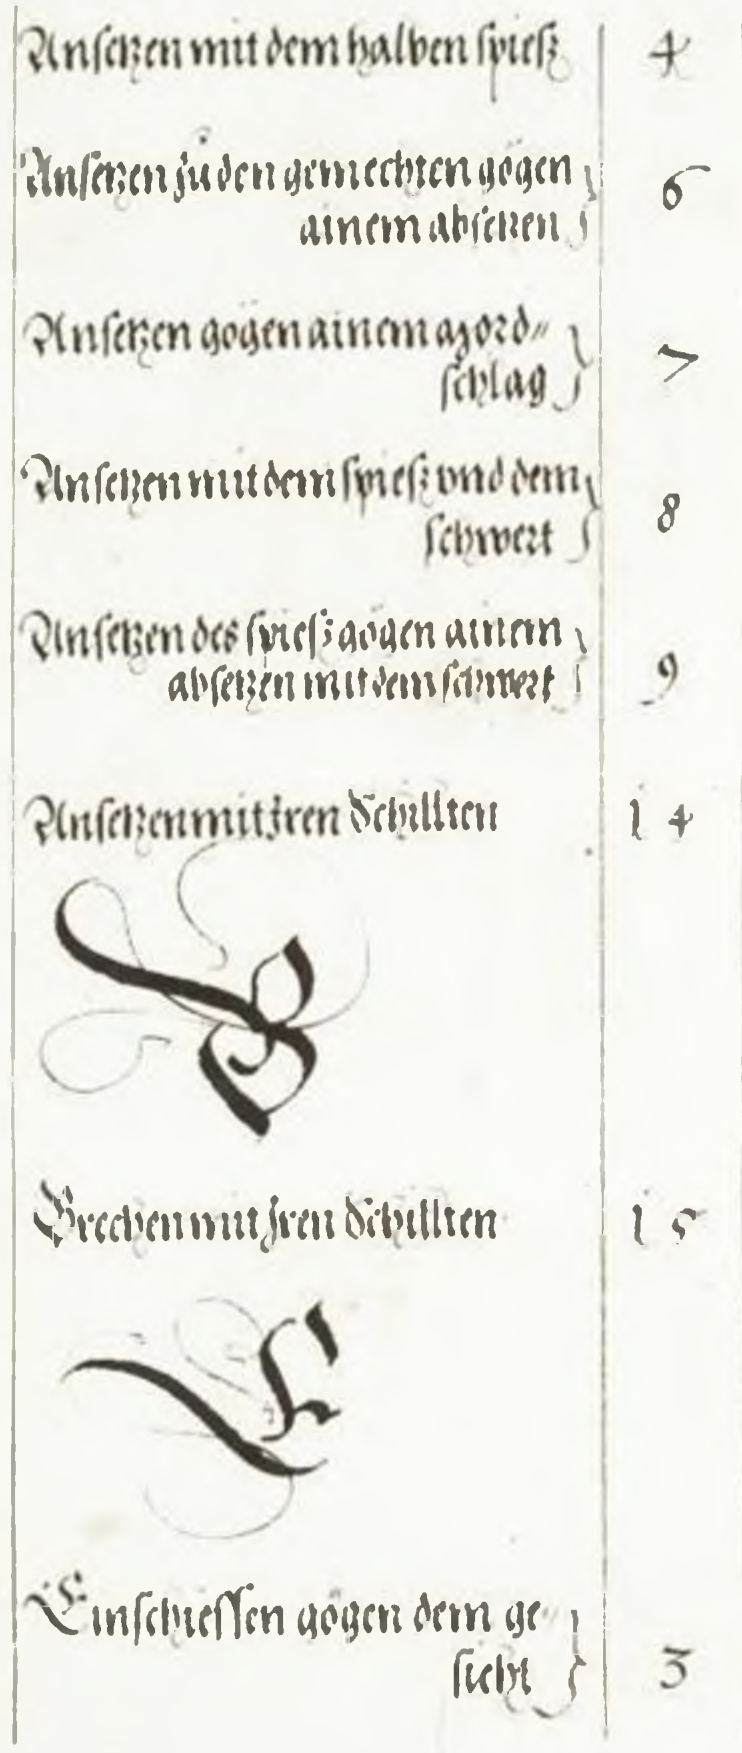 Ansetzen mit dem halben spiesz 4
Ansetzen zů den gemechten gögen
ainem absetzen 6
Ansetzen gögen ainem mord„
schlag 7
Ansetzen mit dem spiesz vnd dem
schwert 8
Ansetzen des spiesz gögen ainem
absetzen mit dem schwert 9
Ansetzen mit jren Schillten 14
B
Brechen mit jren Schillten 15
E
Einschiessen gögen dem ge„
sicht 3